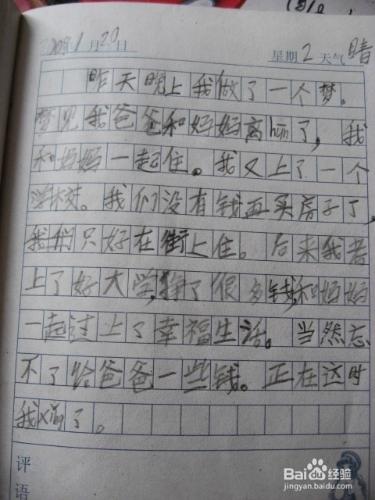 1月20日 星期2 天气晴
昨天晚上我做了一个梦。
梦见我爸爸和妈妈离hūn了，我
和妈妈一起住。我又上了一个
学校。我们没有钱再买房子了，
我们只好在街上住。后来我考
上了好大学，挣了很多钱，和妈妈
一起过上了幸福生活。当然忘
不了给爸爸一些钱。正在这时
我xǐng了。
评
语
Baidu经验
jingyan.baidu.com